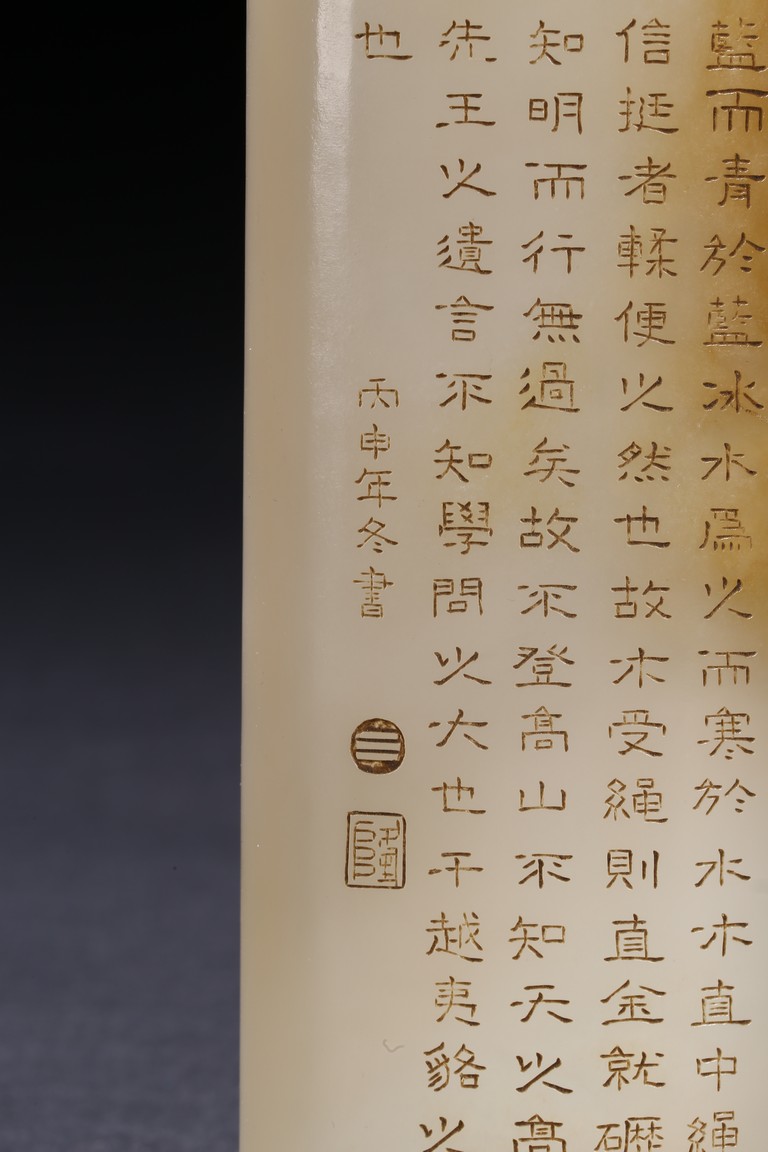 藍而青於藍冰水爲之而寒於水木直中繩
信挺者輮使之然也故木受繩則直金就礪
知明而行無過矣故不登高山不知天之高
先王之遺言不知學問之大也干越夷貉之
也
丙申年冬書